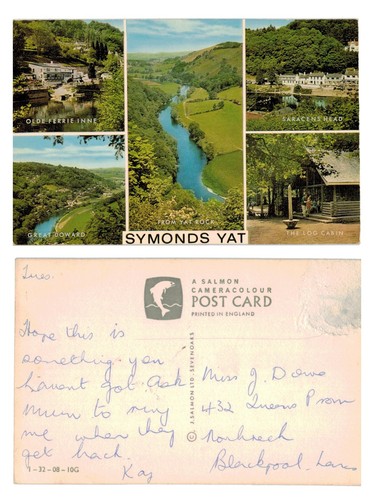 OLDE FERRIE INNE
SARACENS HEAD
GREAT DOWARD
FROM YAT ROCK
THE LOG CABIN
SYMONDS YAT
Tues.
A SALMON
CAMERACOLOUR
POST CARD
PRINTED IN ENGLAND
Hope this is
something you
havent got. Ask
Mum to ring
me when they
get back.
Kay
© J. SALMON LTD. SEVENOAKS
Miss J. Dowe
432 Queens Prom
Norbreck
Blackpool. Lancs
1-32-08-10G